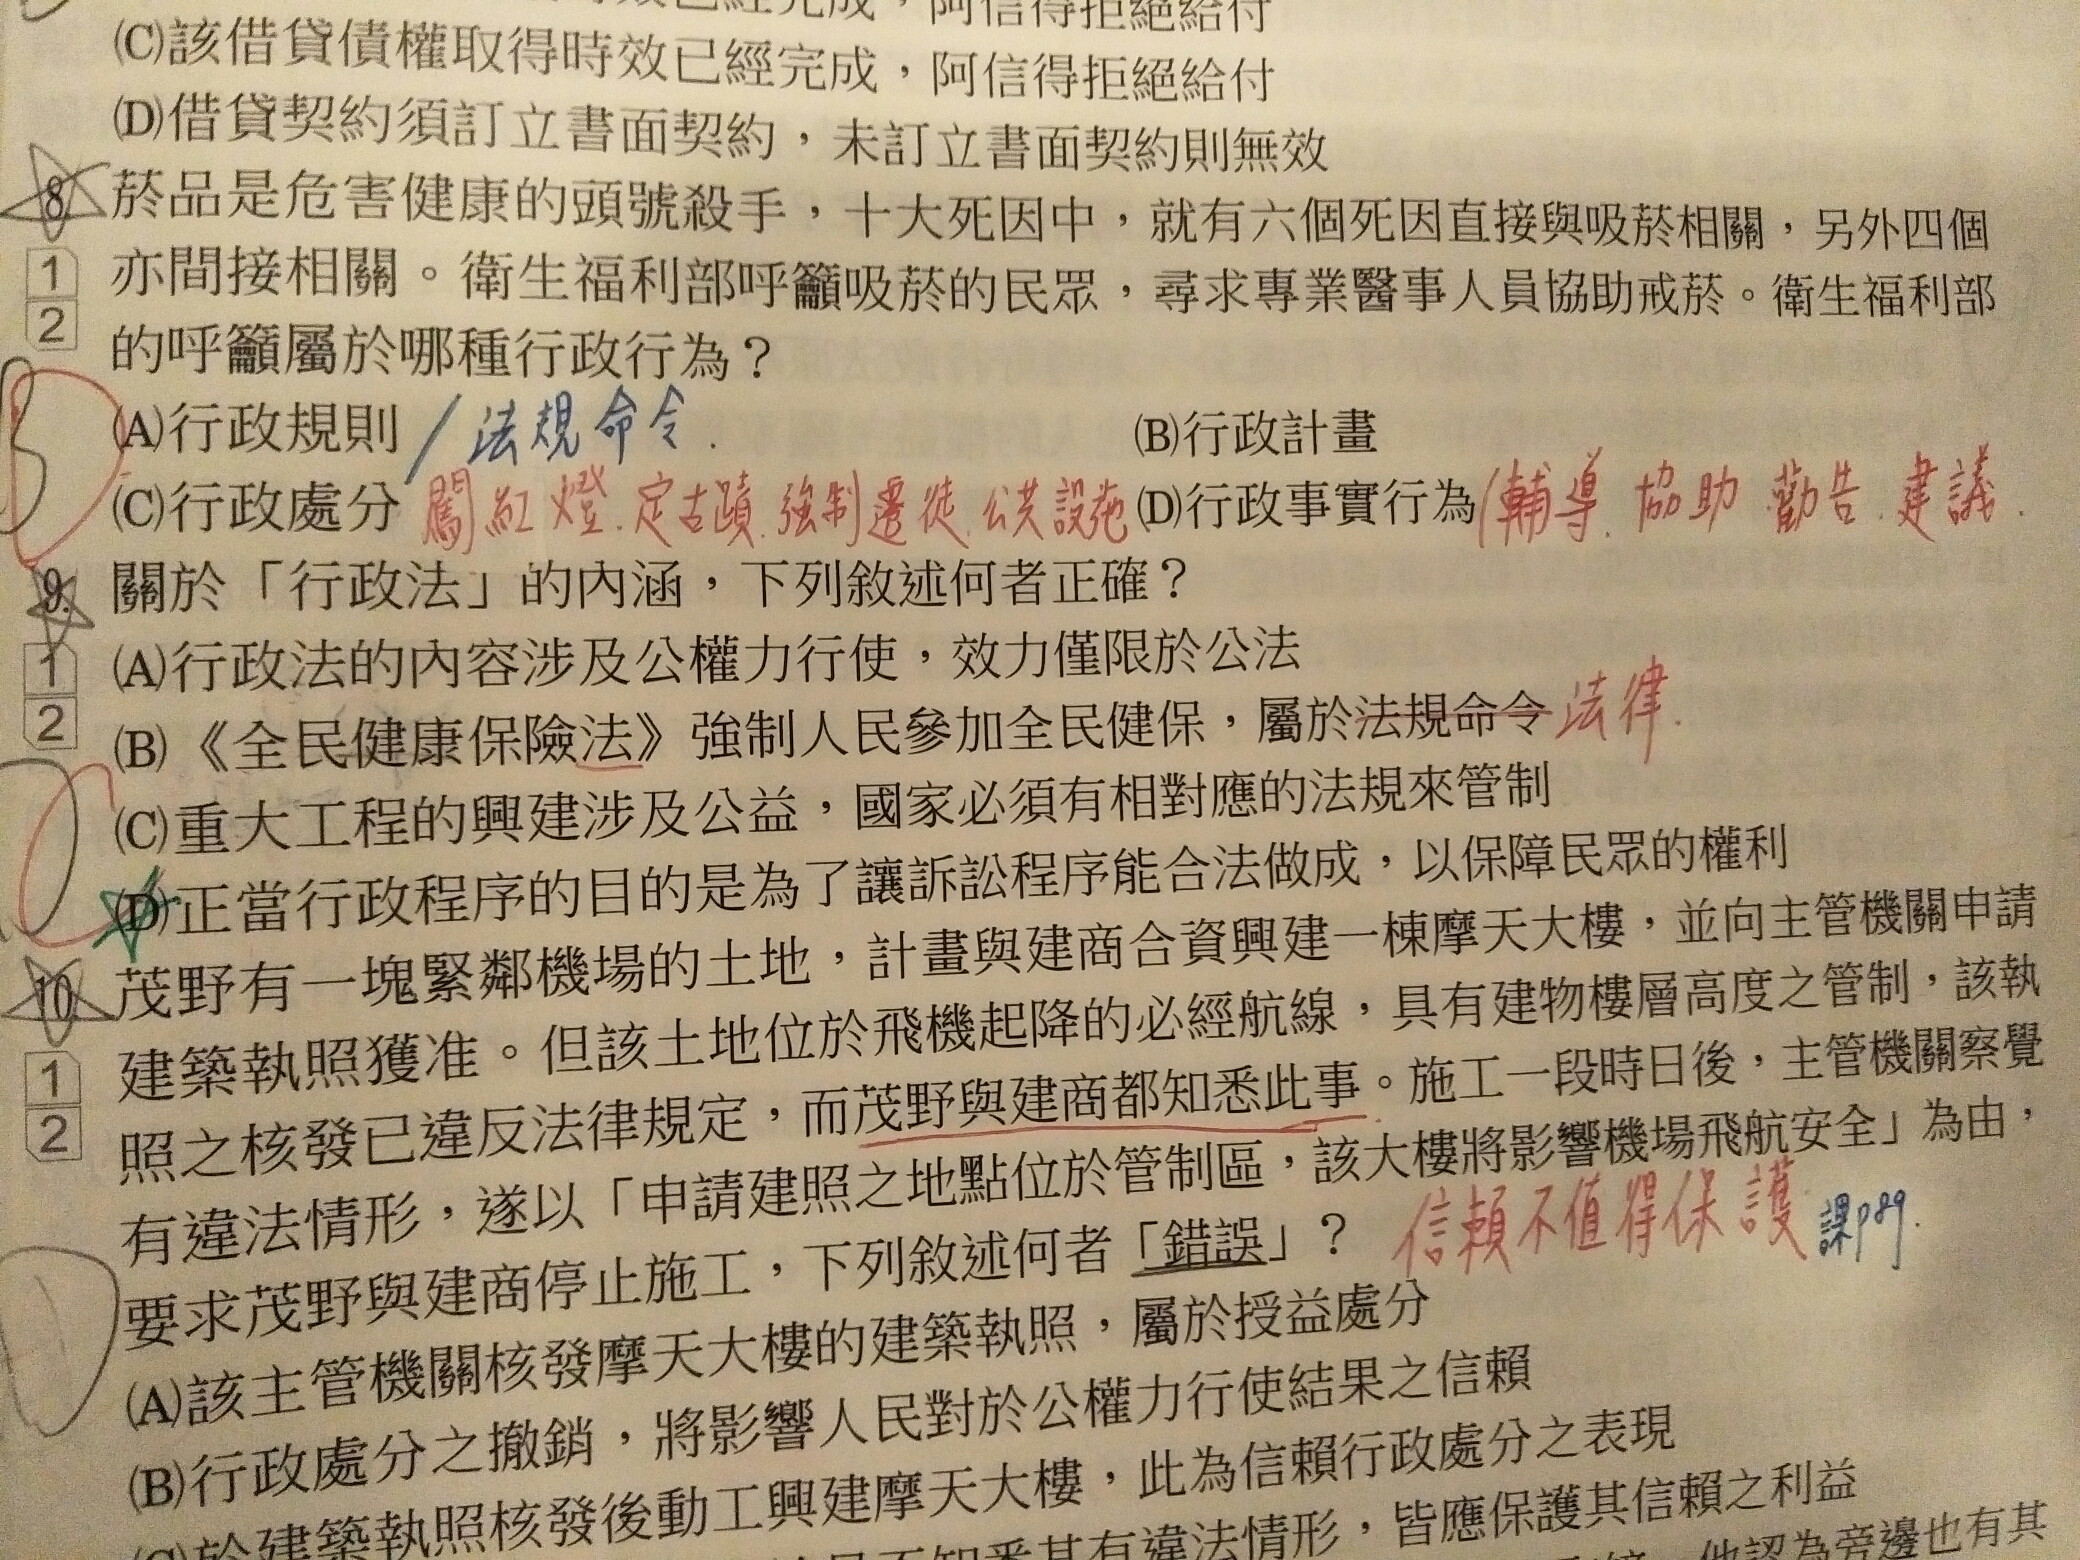 阿信得拒絕給付
(C)該借貸債權取得時效已經完成，阿信得拒絕給付
(D)借貸契約須訂立書面契約，未訂立書面契約則無效
8. 菸品是危害健康的頭號殺手，十大死因中，就有六個死因直接與吸菸相關，另外四個
1 亦間接相關。衛生福利部呼籲吸菸的民眾，尋求專業醫事人員協助戒菸。衛生福利部
2 的呼籲屬於哪種行政行為？
(A)行政規則 / 法規命令. (B)行政計畫
(C)行政處分 闖紅燈.定古蹟.強制遷徙.公共設施 (D)行政事實行為(輔導.協助.勸告.建議.
9. 關於「行政法」的內涵，下列敘述何者正確？
1 (A)行政法的內容涉及公權力行使，效力僅限於公法
2 (B)《全民健康保險法》強制人民參加全民健保，屬於法規命令 法律.
(C)重大工程的興建涉及公益，國家必須有相對應的法規來管制
(D)正當行政程序的目的是為了讓訴訟程序能合法做成，以保障民眾的權利
10. 茂野有一塊緊鄰機場的土地，計畫與建商合資興建一棟摩天大樓，並向主管機關申請
1 建築執照獲准。但該土地位於飛機起降的必經航線，具有建物樓層高度之管制，該執
2 照之核發已違反法律規定，而茂野與建商都知悉此事。施工一段時日後，主管機關察覺
有違法情形，遂以「申請建照之地點位於管制區，該大樓將影響機場飛航安全」為由，
要求茂野與建商停止施工，下列敘述何者「錯誤」？ 信賴不值得保護 課p89.
(A)該主管機關核發摩天大樓的建築執照，屬於授益處分
(B)行政處分之撤銷，將影響人民對於公權力行使結果之信賴
(C)於建築執照核發後動工興建摩天大樓，此為信賴行政處分之表現
不知悉其有違法情形，皆應保護其信賴之利益
他認為旁邊也有其